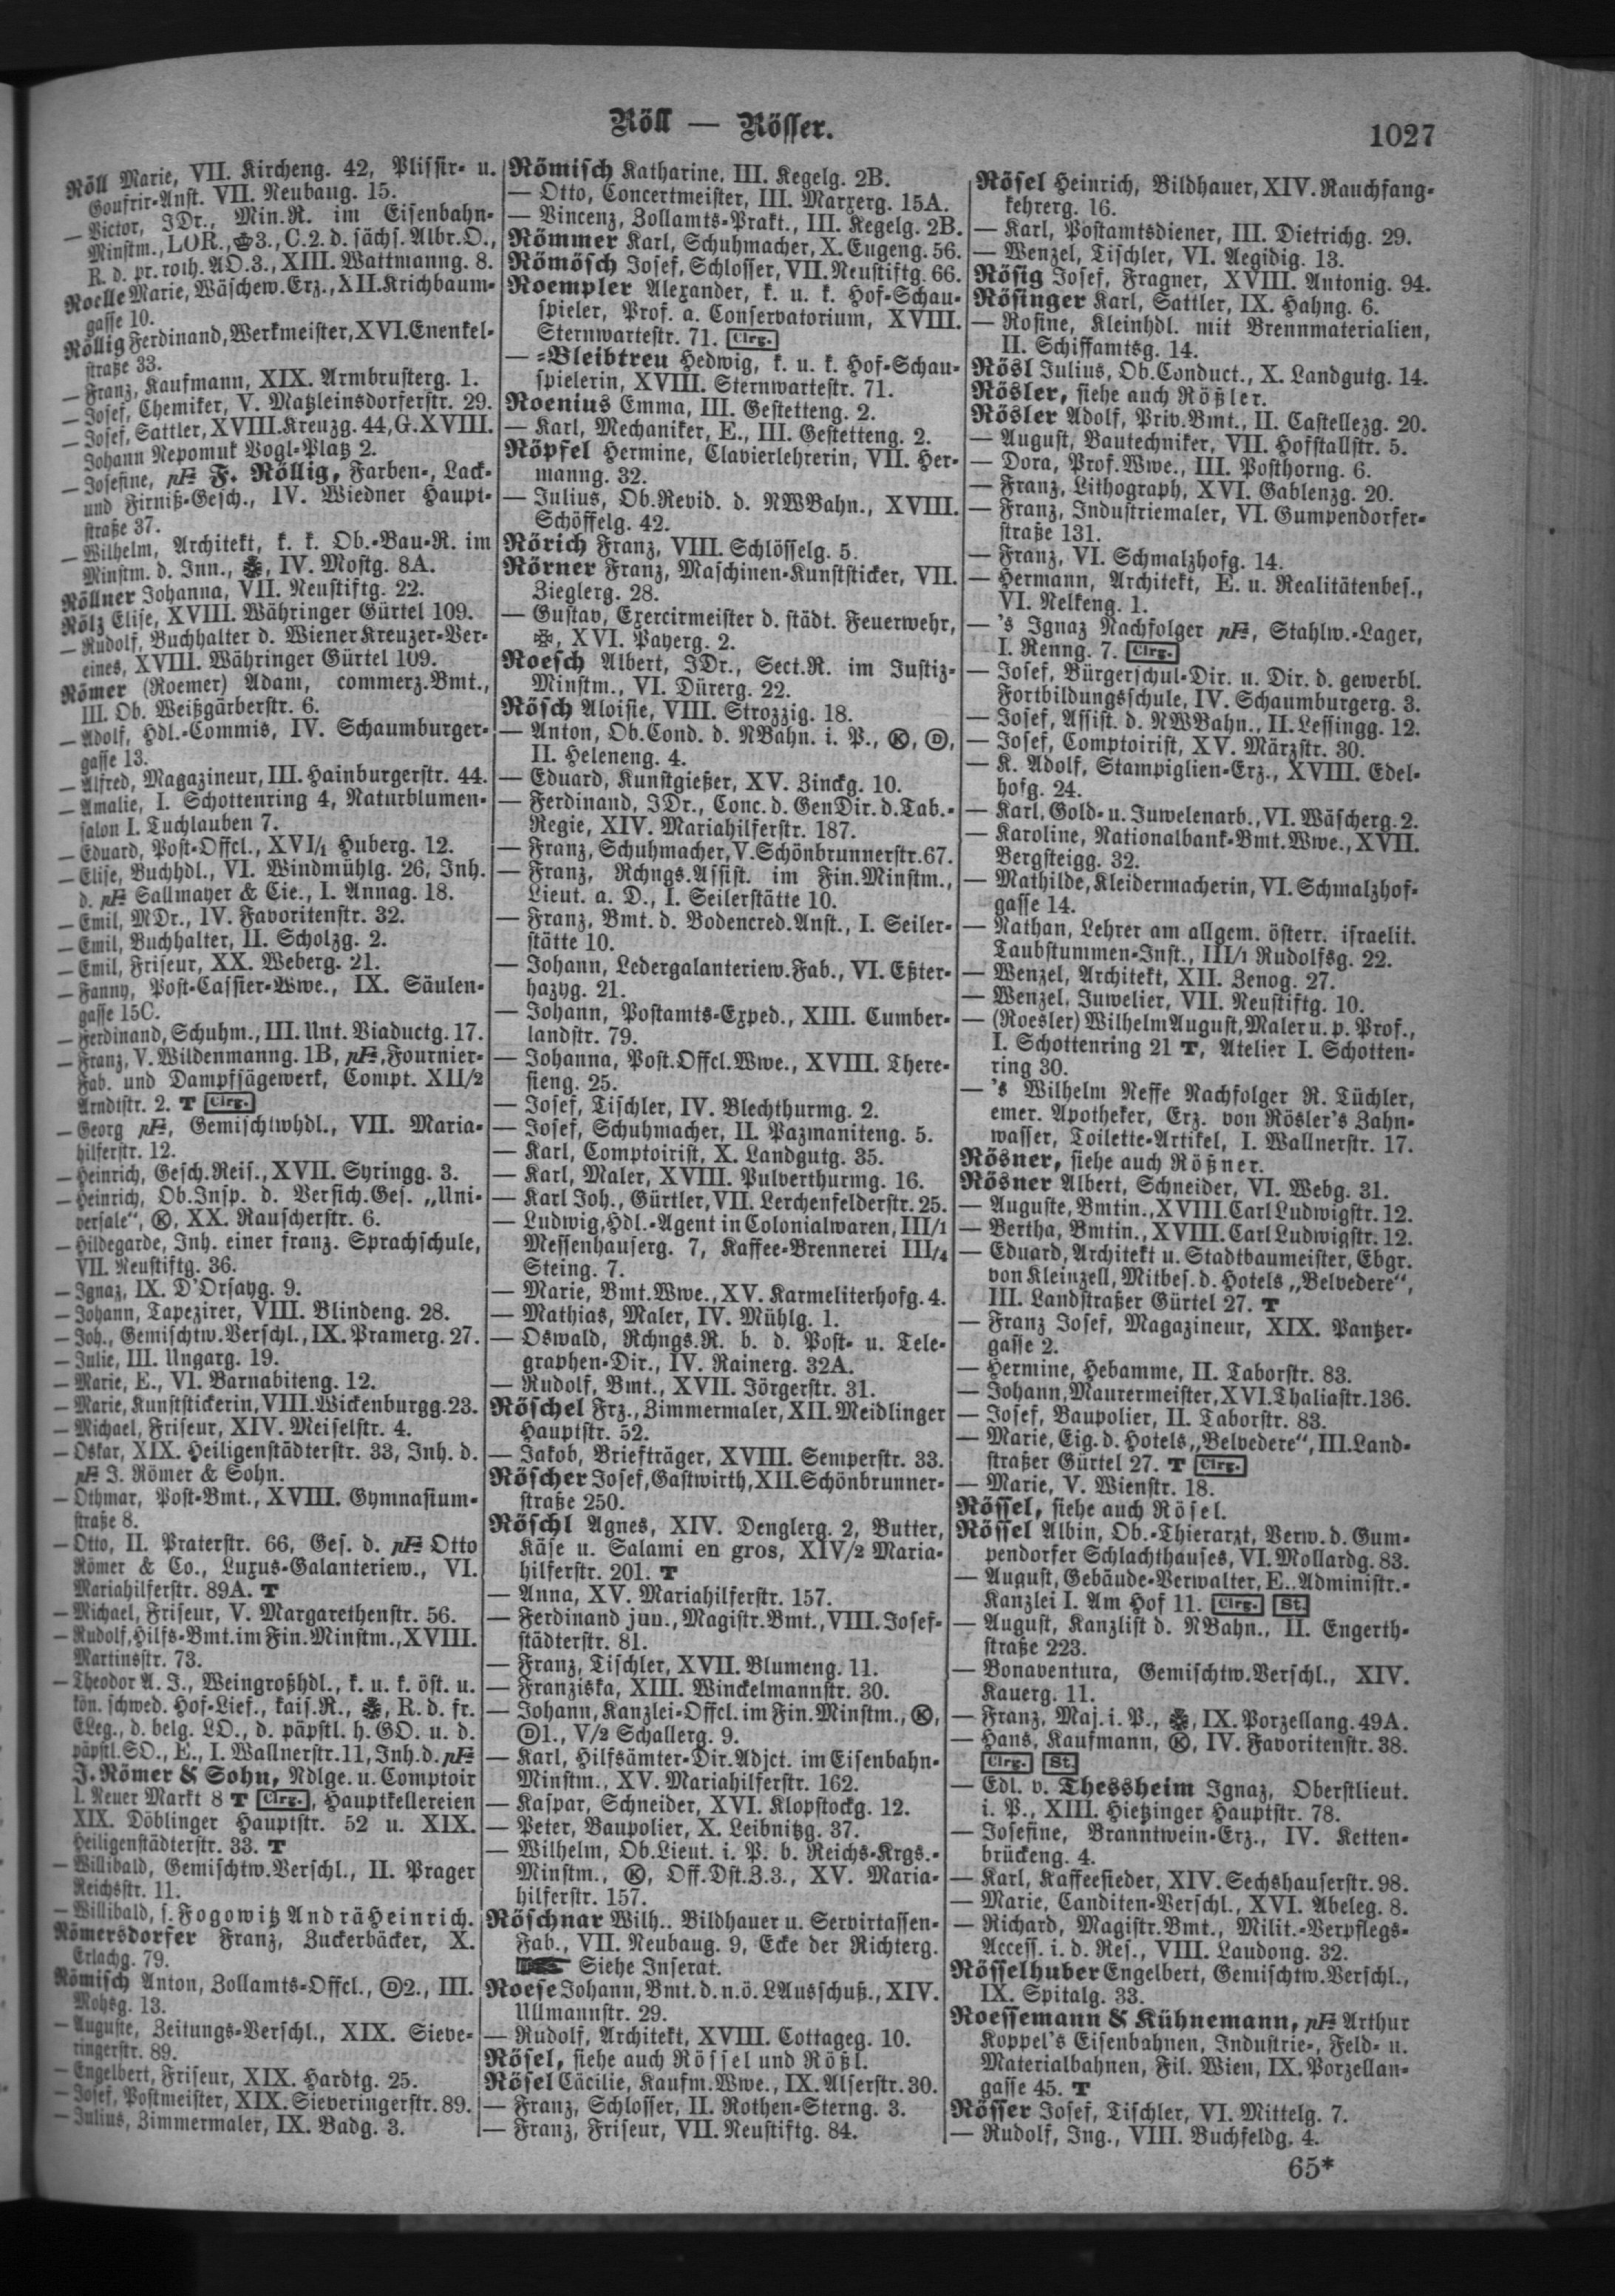 Röll — Rösser.
1027
Röll Marie, VII. Kircheng. 42, Plissir- u.
Goufrir-Anst. VII. Neubaug. 15.
— Victor, JDr., Min.R. im Eisenbahn-
Minstm., LOR., 3., C.2. d. sächs. Albr.O.,
R. d. pr. roth. AO.3., XIII. Wattmanng. 8.
Roelle Marie, Wäschew.Erz., XII. Krichbaum-
gasse 10.
Röllig Ferdinand, Werkmeister, XVI. Enenkel-
straße 33.
— Franz, Kaufmann, XIX. Armbrusterg. 1.
— Josef, Chemiker, V. Matzleinsdorferstr. 29.
— Josef, Sattler, XVIII. Kreuzg. 44, G. XVIII.
Johann Nepomuk Vogl-Platz 2.
— Josefine, pF F. Röllig, Farben-, Lack-
und Firniß-Gesch., IV. Wiedner Haupt-
straße 37.
— Wilhelm, Architekt, k. k. Ob.-Bau-R. im
Minstm. d. Inn., IV. Mostg. 8A.
Röllner Johanna, VII. Neustiftg. 22.
Rölz Elise, XVIII. Währinger Gürtel 109.
— Rudolf, Buchhalter d. Wiener Kreuzer-Ver-
eines, XVIII. Währinger Gürtel 109.
Römer (Roemer) Adam, commerz.Bmt.,
III. Ob. Weißgärberstr. 6.
— Adolf, Hdl.-Commis, IV. Schaumburger-
gasse 13.
— Alfred, Magazineur, III. Hainburgerstr. 44.
— Amalie, I. Schottenring 4, Naturblumen-
salon I. Tuchlauben 7.
— Eduard, Post-Offcl., XVI/1 Huberg. 12.
— Elise, Buchhdl., VI. Windmühlg. 26, Inh.
d. pF Sallmayer & Cie., I. Annag. 18.
— Emil, MDr., IV. Favoritenstr. 32.
— Emil, Buchhalter, II. Scholzg. 2.
— Emil, Friseur, XX. Weberg. 21.
— Fanny, Post-Cassier-Wwe., IX. Säulen-
gasse 15C.
— Ferdinand, Schuhm., III. Unt. Viaductg. 17.
— Franz, V. Wildenmanng. 1B, pF, Fournier-
Fab. und Dampfsägewerk, Compt. XII/2
Arndtstr. 2. T Clrg.
— Georg pF, Gemischtwhdl., VII. Maria-
hilferstr. 12.
— Heinrich, Gesch.Reis., XVII. Syringg. 3.
— Heinrich, Ob.Insp. d. Versich.Ges. „Uni-
versale“, Ⓚ, XX. Rauscherstr. 6.
— Hildegarde, Inh. einer franz. Sprachschule,
VII. Neustiftg. 36.
— Ignaz, IX. D'Orsayg. 9.
— Johann, Tapezirer, VIII. Blindeng. 28.
— Joh., Gemischtw.Verschl., IX. Pramerg. 27.
— Julie, III. Ungarg. 19.
— Marie, E., VI. Barnabiteng. 12.
— Marie, Kunststickerin, VIII. Wickenburgg. 23.
— Michael, Friseur, XIV. Meiselstr. 4.
— Oskar, XIX. Heiligenstädterstr. 33, Inh. d.
pF J. Römer & Sohn.
— Othmar, Post-Bmt., XVIII. Gymnasium-
straße 8.
— Otto, II. Praterstr. 66, Ges. d. pF Otto
Römer & Co., Luxus-Galanteriew., VI.
Mariahilferstr. 89A. T
— Michael, Friseur, V. Margarethenstr. 56.
— Rudolf, Hilfs-Bmt. im Fin.Minstm., XVIII.
Martinsstr. 73.
— Theodor A. J., Weingroßhdl., k. u. k. öst. u.
kön. schwed. Hof-Lief., kais.R., R. d. fr.
ELeg., d. belg. LO., d. päpstl. h. GO. u. d.
päpstl. SO., E., I. Wallnerstr. 11, Inh. d. pF
J. Römer & Sohn, Ndlge. u. Comptoir
I. Neuer Markt 8 T Clrg., Hauptkellereien
XIX. Döblinger Hauptstr. 52 u. XIX.
Heiligenstädterstr. 33. T
— Willibald, Gemischtw.Verschl., II. Prager
Reichsstr. 11.
— Willibald, s. Fogowitz Andrä Heinrich.
Römersdorfer Franz, Zuckerbäcker, X.
Erlachg. 79.
Römisch Anton, Zollamts-Offcl., Ⓓ2., III.
Mohsg. 13.
— Auguste, Zeitungs-Verschl., XIX. Sieve-
ringerstr. 89.
— Engelbert, Friseur, XIX. Hardtg. 25.
— Josef, Postmeister, XIX. Sieveringerstr. 89.
— Julius, Zimmermaler, IX. Badg. 3.
Römisch Katharine, III. Kegelg. 2B.
— Otto, Concertmeister, III. Marxerg. 15A.
— Vincenz, Zollamts-Prakt., III. Kegelg. 2B.
Römmer Karl, Schuhmacher, X. Eugeng. 56.
Römösch Josef, Schlosser, VII. Neustiftg. 66.
Roempler Alexander, k. u. k. Hof-Schau-
spieler, Prof. a. Conservatorium, XVIII.
Sternwartestr. 71. Clrg.
— -Bleibtreu Hedwig, k. u. k. Hof-Schau-
spielerin, XVIII. Sternwartestr. 71.
Roenius Emma, III. Gestetteng. 2.
— Karl, Mechaniker, E., III. Gestetteng. 2.
Röpfel Hermine, Clavierlehrerin, VII. Her-
manng. 32.
— Julius, Ob.Revid. d. NWBahn., XVIII.
Schöffelg. 42.
Rörich Franz, VIII. Schlösselg. 5.
Rörner Franz, Maschinen-Kunststicker, VII.
Zieglerg. 28.
— Gustav, Exercirmeister d. städt. Feuerwehr,
XVI. Payerg. 2.
Roesch Albert, JDr., Sect.R. im Justiz-
Minstm., VI. Dürerg. 22.
Rösch Aloisie, VIII. Strozzig. 18.
— Anton, Ob.Cond. d. NBahn. i. P., Ⓚ, Ⓓ,
II. Heleneng. 4.
— Eduard, Kunstgießer, XV. Zinckg. 10.
— Ferdinand, JDr., Conc. d. GenDir. d. Tab.-
Regie, XIV. Mariahilferstr. 187.
— Franz, Schuhmacher, V. Schönbrunnerstr. 67.
— Franz, Rchngs.Assist. im Fin.Minstm.,
Lieut. a. D., I. Seilerstätte 10.
— Franz, Bmt. d. Bodencred.Anst., I. Seiler-
stätte 10.
— Johann, Ledergalanteriew.Fab., VI. Eßter-
hazyg. 21.
— Johann, Postamts-Exped., XIII. Cumber-
landstr. 79.
— Johanna, Post.Offcl.Wwe., XVIII. There-
sieng. 25.
— Josef, Tischler, IV. Blechthurmg. 2.
— Josef, Schuhmacher, II. Pazmaniteng. 5.
— Karl, Comptoirist, X. Landgutg. 35.
— Karl, Maler, XVIII. Pulverthurmg. 16.
— Karl Joh., Gürtler, VII. Lerchenfelderstr. 25.
— Ludwig, Hdl.-Agent in Colonialwaren, III/1
Messenhauserg. 7, Kaffee-Brennerei III/4
Steing. 7.
— Marie, Bmt.Wwe., XV. Karmeliterhofg. 4.
— Mathias, Maler, IV. Mühlg. 1.
— Oswald, Rchngs.R. b. d. Post- u. Tele-
graphen-Dir., IV. Rainerg. 32A.
— Rudolf, Bmt., XVII. Jörgerstr. 31.
Röschel Frz., Zimmermaler, XII. Meidlinger
Hauptstr. 52.
— Jakob, Briefträger, XVIII. Semperstr. 33.
Röscher Josef, Gastwirth, XII. Schönbrunner-
straße 250.
Röschl Agnes, XIV. Denglerg. 2, Butter,
Käse u. Salami en gros, XIV/2 Maria-
hilferstr. 201. T
— Anna, XV. Mariahilferstr. 157.
— Ferdinand jun., Magistr.Bmt., VIII. Josef-
städterstr. 81.
— Franz, Tischler, XVII. Blumeng. 11.
— Franziska, XIII. Winckelmannstr. 30.
— Johann, Kanzlei-Offcl. im Fin.Minstm., Ⓚ,
Ⓓ1., V/2 Schallerg. 9.
— Karl, Hilfsämter-Dir.Adjct. im Eisenbahn-
Minstm., XV. Mariahilferstr. 162.
— Kaspar, Schneider, XVI. Klopstockg. 12.
— Peter, Baupolier, X. Leibnitzg. 37.
— Wilhelm, Ob.Lieut. i. P. b. Reichs-Krgs.-
Minstm., Ⓚ, Off.Dst.Z.3., XV. Maria-
hilferstr. 157.
Röschnar Wilh.. Bildhauer u. Servirtassen-
Fab., VII. Neubaug. 9, Ecke der Richterg.
☛ Siehe Inserat.
Roese Johann, Bmt. d. n.ö. LAusschuß., XIV.
Ullmannstr. 29.
— Rudolf, Architekt, XVIII. Cottageg. 10.
Rösel, siehe auch Rössel und Rößl.
Rösel Cäcilie, Kaufm.Wwe., IX. Alserstr. 30.
— Franz, Schlosser, II. Rothen-Sterng. 3.
— Franz, Friseur, VII. Neustiftg. 84.
Rösel Heinrich, Bildhauer, XIV. Rauchfang-
kehrerg. 16.
— Karl, Postamtsdiener, III. Dietrichg. 29.
— Wenzel, Tischler, VI. Aegidig. 13.
Rösig Josef, Fragner, XVIII. Antonig. 94.
Rösinger Karl, Sattler, IX. Hahng. 6.
— Rosine, Kleinhdl. mit Brennmaterialien,
II. Schiffamtsg. 14.
Rösl Julius, Ob.Conduct., X. Landgutg. 14.
Rösler, siehe auch Rößler.
Rösler Adolf, Priv.Bmt., II. Castellezg. 20.
— August, Bautechniker, VII. Hofstallstr. 5.
— Dora, Prof.Wwe., III. Posthorng. 6.
— Franz, Lithograph, XVI. Gablenzg. 20.
— Franz, Industriemaler, VI. Gumpendorfer-
straße 131.
— Franz, VI. Schmalzhofg. 14.
— Hermann, Architekt, E. u. Realitätenbes.,
VI. Nelkeng. 1.
— 's Ignaz Nachfolger pF, Stahlw.-Lager,
I. Renng. 7. Clrg.
— Josef, Bürgerschul-Dir. u. Dir. d. gewerbl.
Fortbildungsschule, IV. Schaumburgerg. 3.
— Josef, Assist. d. NWBahn., II. Lessingg. 12.
— Josef, Comptoirist, XV. Märzstr. 30.
— K. Adolf, Stampiglien-Erz., XVIII. Edel-
hofg. 24.
— Karl, Gold- u. Juwelenarb., VI. Wäscherg. 2.
— Karoline, Nationalbank-Bmt.Wwe., XVII.
Bergsteigg. 32.
— Mathilde, Kleidermacherin, VI. Schmalzhof-
gasse 14.
— Nathan, Lehrer am allgem. österr. israelit.
Taubstummen-Inst., III/1 Rudolfsg. 22.
— Wenzel, Architekt, XII. Zenog. 27.
— Wenzel, Juwelier, VII. Neustiftg. 10.
— (Roesler) Wilhelm August, Maler u. p. Prof.,
I. Schottenring 21 T, Atelier I. Schotten-
ring 30.
— 's Wilhelm Neffe Nachfolger R. Tüchler,
emer. Apotheker, Erz. von Rösler's Zahn-
wasser, Toilette-Artikel, I. Wallnerstr. 17.
Rösner, siehe auch Rößner.
Rösner Albert, Schneider, VI. Webg. 31.
— Auguste, Bmtin., XVIII. Carl Ludwigstr. 12.
— Bertha, Bmtin., XVIII. Carl Ludwigstr. 12.
— Eduard, Architekt u. Stadtbaumeister, Ebgr.
von Kleinzell, Mitbes. d. Hotels „Belvedere“,
III. Landstraßer Gürtel 27. T
— Franz Josef, Magazineur, XIX. Pantzer-
gasse 2.
— Hermine, Hebamme, II. Taborstr. 83.
— Johann, Maurermeister, XVI. Thaliastr. 136.
— Josef, Baupolier, II. Taborstr. 83.
— Marie, Eig. d. Hotels „Belvedere“, III. Land-
straßer Gürtel 27. T Clrg.
— Marie, V. Wienstr. 18.
Rössel, siehe auch Rösel.
Rössel Albin, Ob.-Thierarzt, Verw. d. Gum-
pendorfer Schlachthauses, VI. Mollardg. 83.
— August, Gebäude-Verwalter, E.. Administr.-
Kanzlei I. Am Hof 11. Clrg. St.
— August, Kanzlist d. NBahn., II. Engerth-
straße 223.
— Bonaventura, Gemischtw.Verschl., XIV.
Kauerg. 11.
— Franz, Maj. i. P., IX. Porzellang. 49A.
— Hans, Kaufmann, Ⓚ, IV. Favoritenstr. 38.
Clrg. St.
— Edl. v. Thessheim Ignaz, Oberstlieut.
i. P., XIII. Hietzinger Hauptstr. 78.
— Josefine, Branntwein-Erz., IV. Ketten-
brückeng. 4.
— Karl, Kaffeesieder, XIV. Sechshauserstr. 98.
— Marie, Canditen-Verschl., XVI. Abeleg. 8.
— Richard, Magistr.Bmt., Milit.-Verpflegs-
Access. i. d. Res., VIII. Laudong. 32.
Rösselhuber Engelbert, Gemischtw.Verschl.,
IX. Spitalg. 33.
Roessemann & Kühnemann, pF Arthur
Koppel's Eisenbahnen, Industrie-, Feld- u.
Materialbahnen, Fil. Wien, IX. Porzellan-
gasse 45. T
Rösser Josef, Tischler, VI. Mittelg. 7.
— Rudolf, Ing., VIII. Buchfeldg. 4.
65*